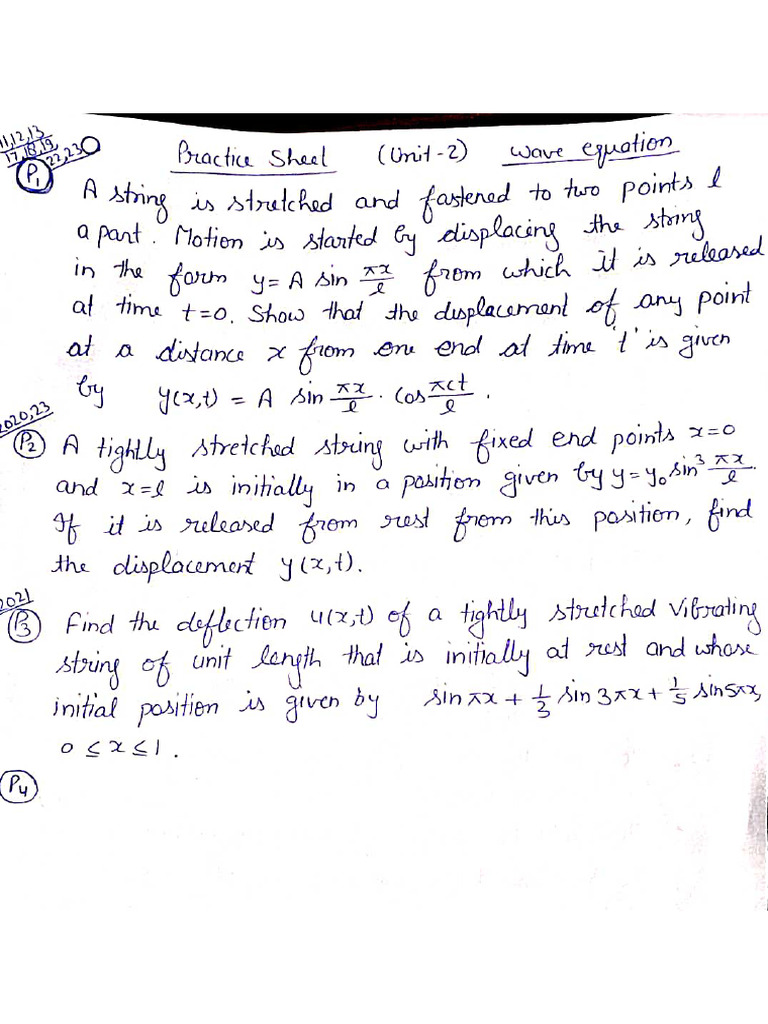 11,12,13
17,18,19
22,23
Practice Sheet (Unit-2) wave equation
P1 A string is stretched and fastened to two points l
apart. Motion is started by displacing the string
in the form y = A sin πx/l from which it is released
at time t=0. Show that the displacement of any point
at a distance x from one end at time 't' is given
by y(x,t) = A sin πx/l · cos πct/l.
2020,23
P2 A tightly stretched string with fixed end points x=0
and x=l is initially in a position given by y=y₀ sin³ πx/l.
If it is released from rest from this position, find
the displacement y(x,t).
2021
P3 Find the deflection u(x,t) of a tightly stretched vibrating
string of unit length that is initially at rest and whose
initial position is given by sin πx + 1/3 sin 3πx + 1/5 sin 5πx,
0 ≤ x ≤ 1.
P4